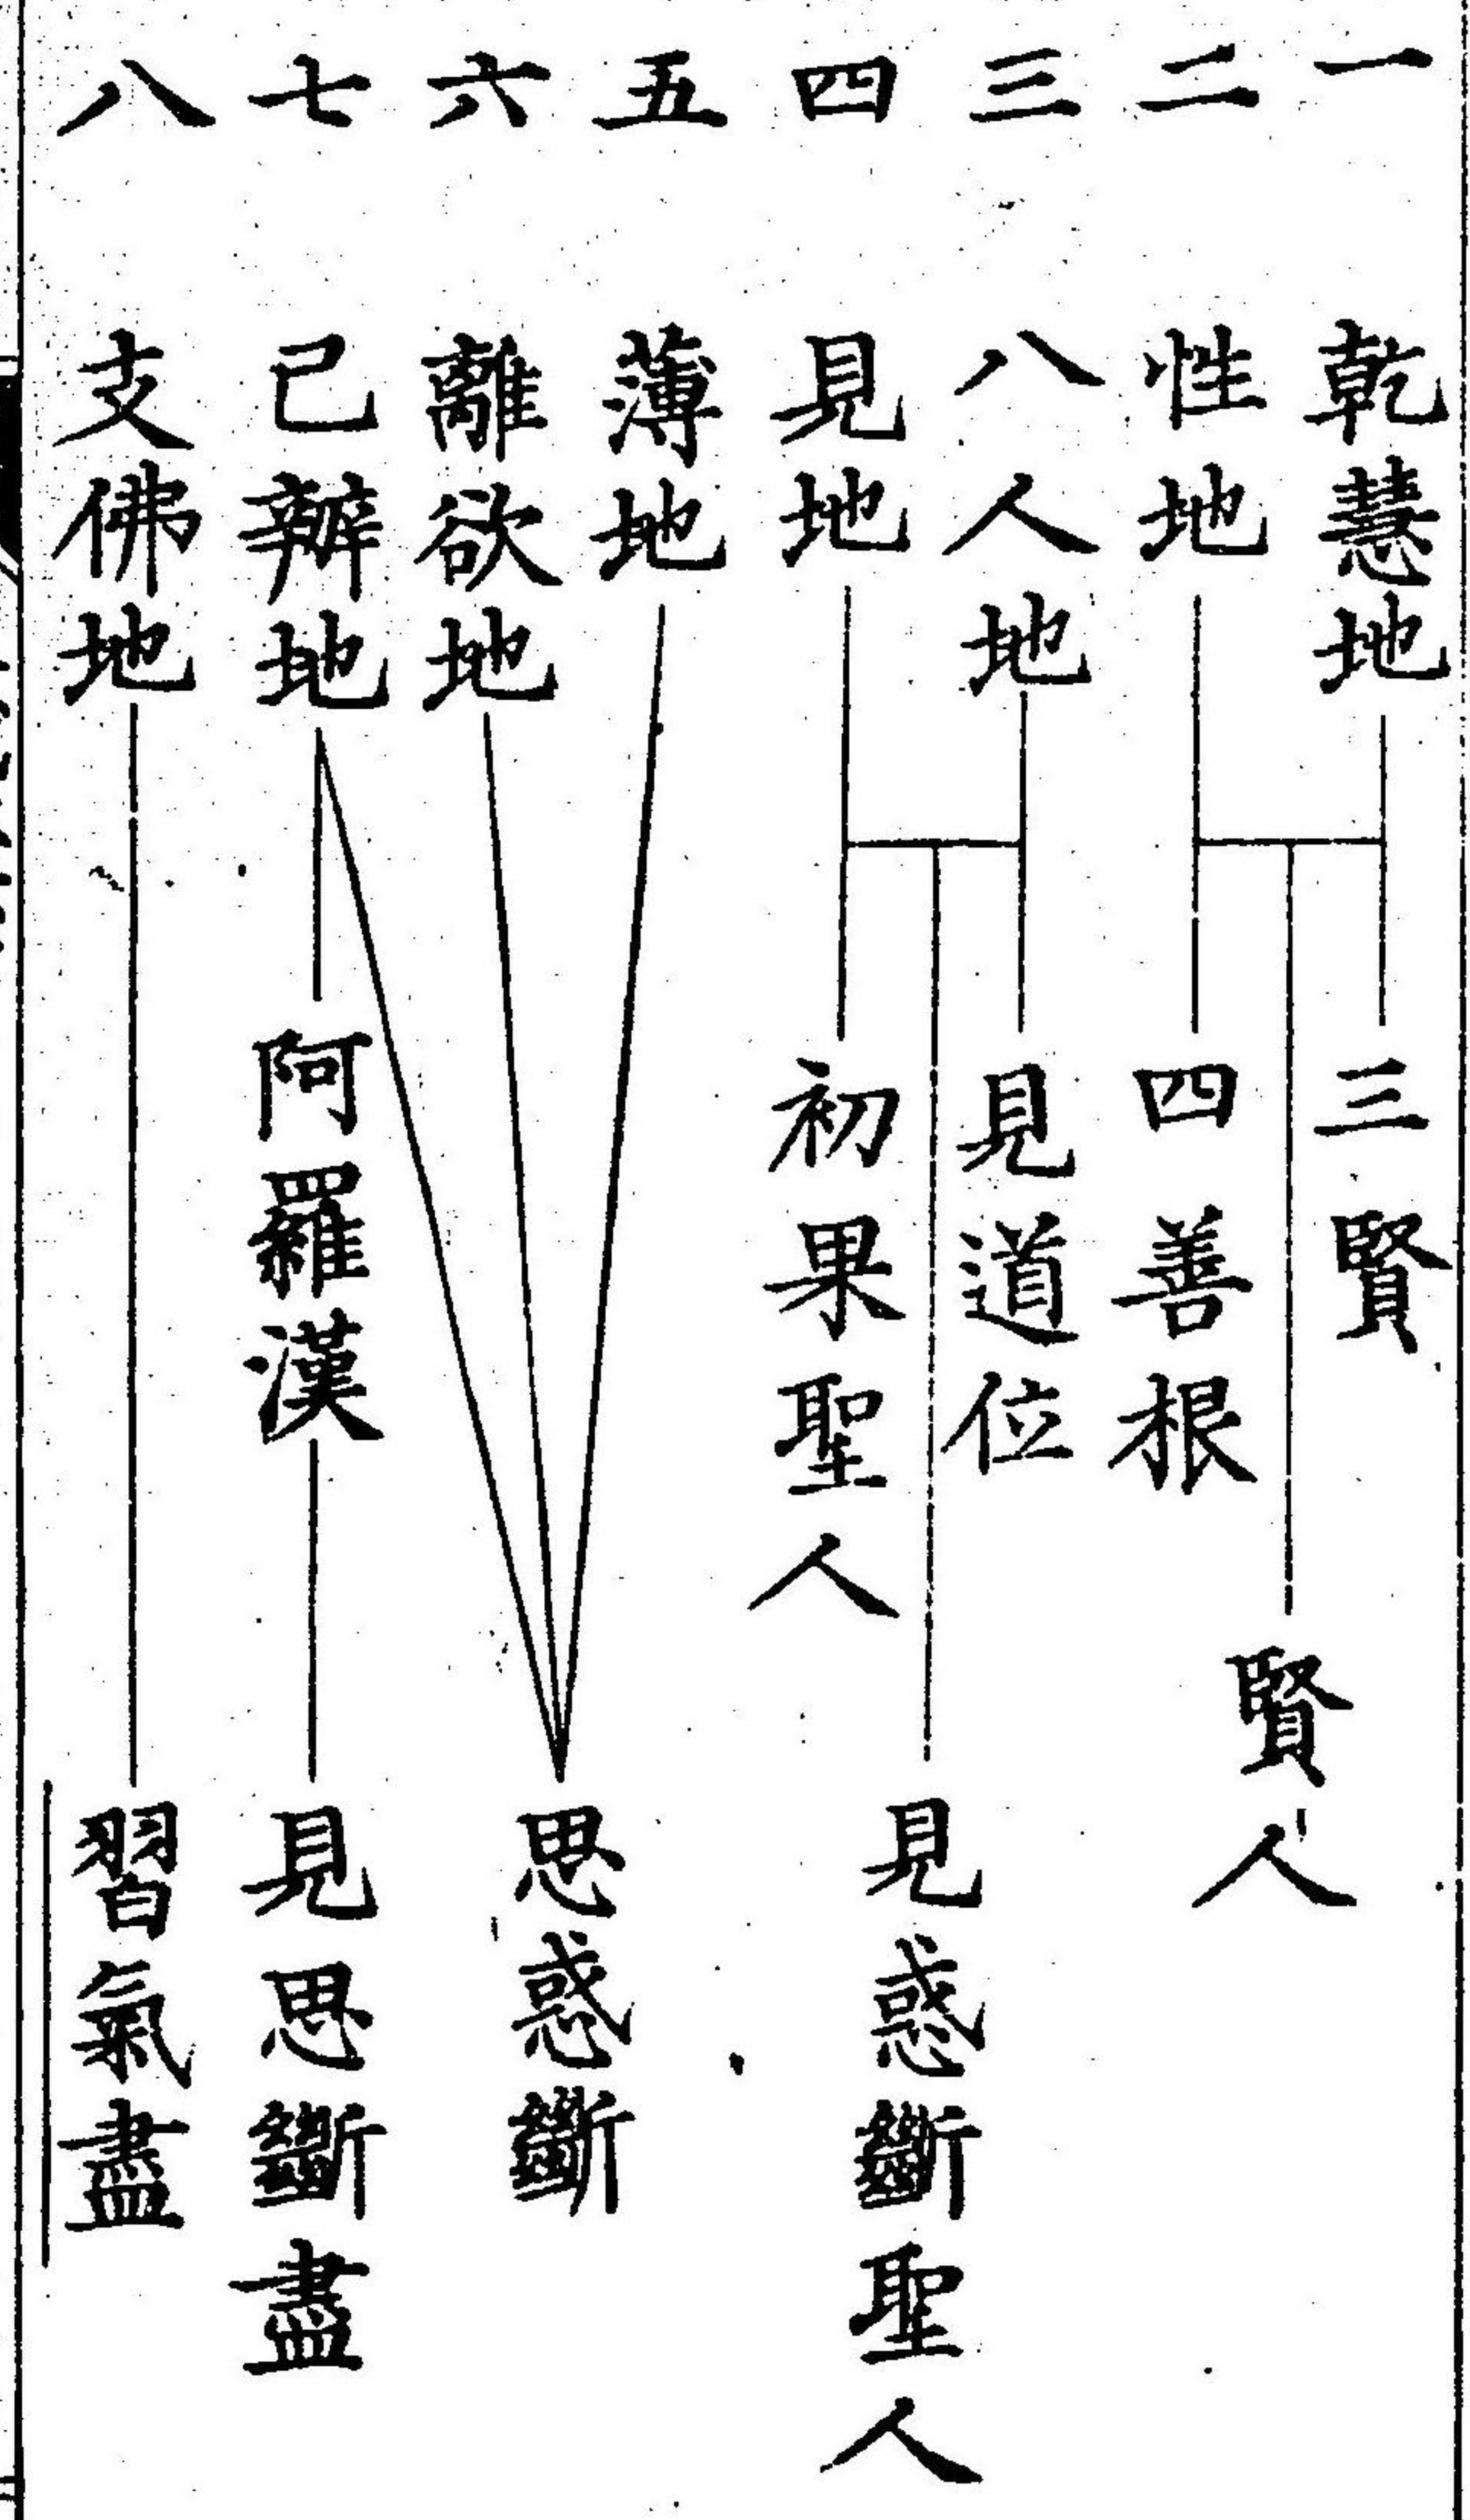 一 乾慧地 三賢
二 性地 四善根
賢人
三 八人地 見道位
四 見地 初果聖人
見惑斷聖人
五 薄地
六 離欲地
思惑斷
七 已辨地 阿羅漢 見思斷盡
八 支佛地 習氣盡